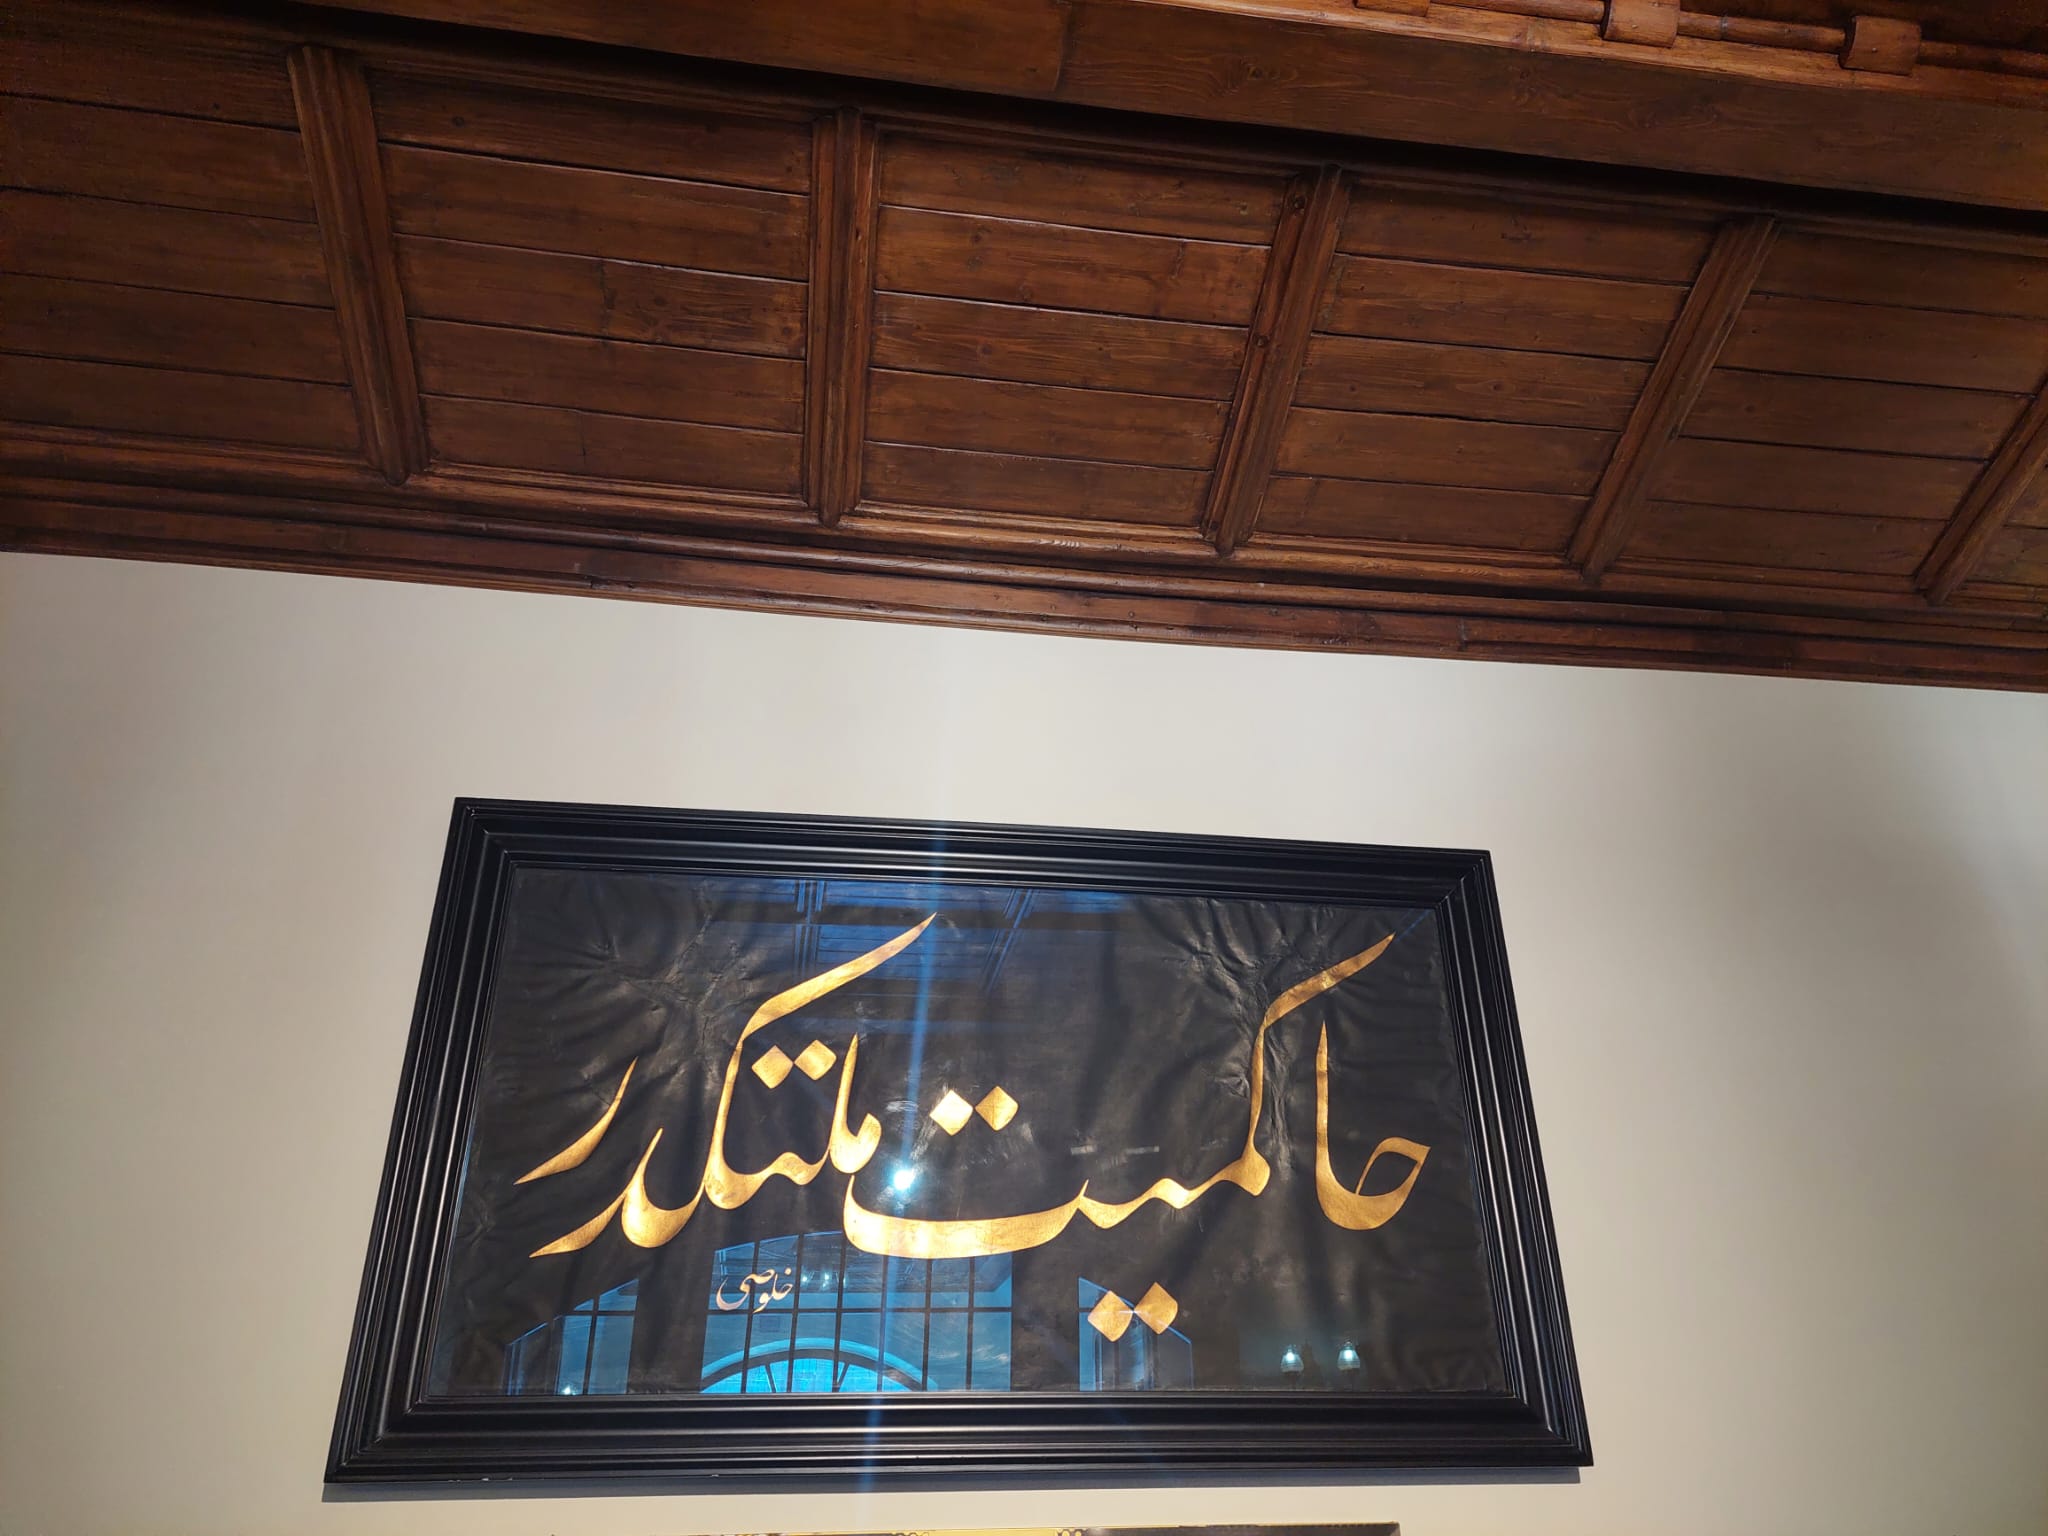 حاكميت ملتكدر
خلوصی